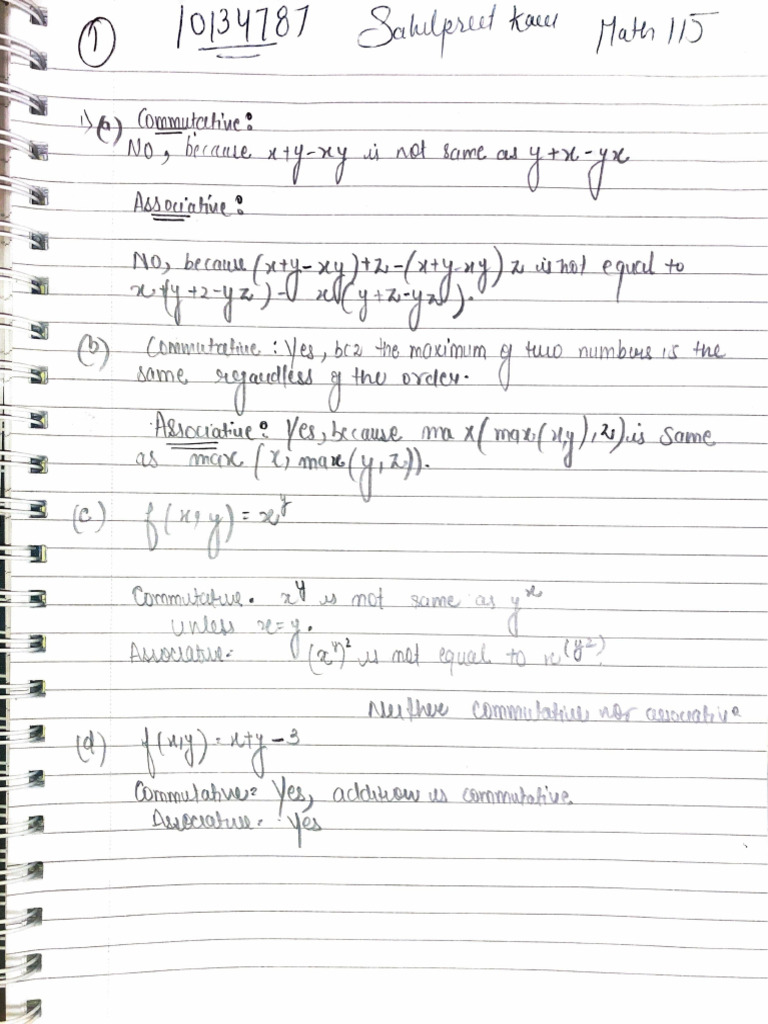 ① 10134787 Sahilpreet Kaur Math 115
1) (a) Commutative:
No, because x+y-xy is not same as y+x-yx
Associative:
No, because (x+y-xy)+z-(x+y-xy)z is not equal to
x+(y+z-yz)- x(y+z-yz).
(b) Commutative: Yes, bcz the maximum of two numbers is the
same regardless of the order.
Associative: Yes, because max(max(x,y),z) is same
as max(x, max(y,z)).
(c) f(x,y)=x^y
Commutative. x^y is not same as y^x
unless x=y.
Associative- (x^y)^z is not equal to x^(y^z)
Neither commutative nor associative
(d) f(x,y)=x+y-3
Commutative= Yes, addition is commutative
Associative. Yes